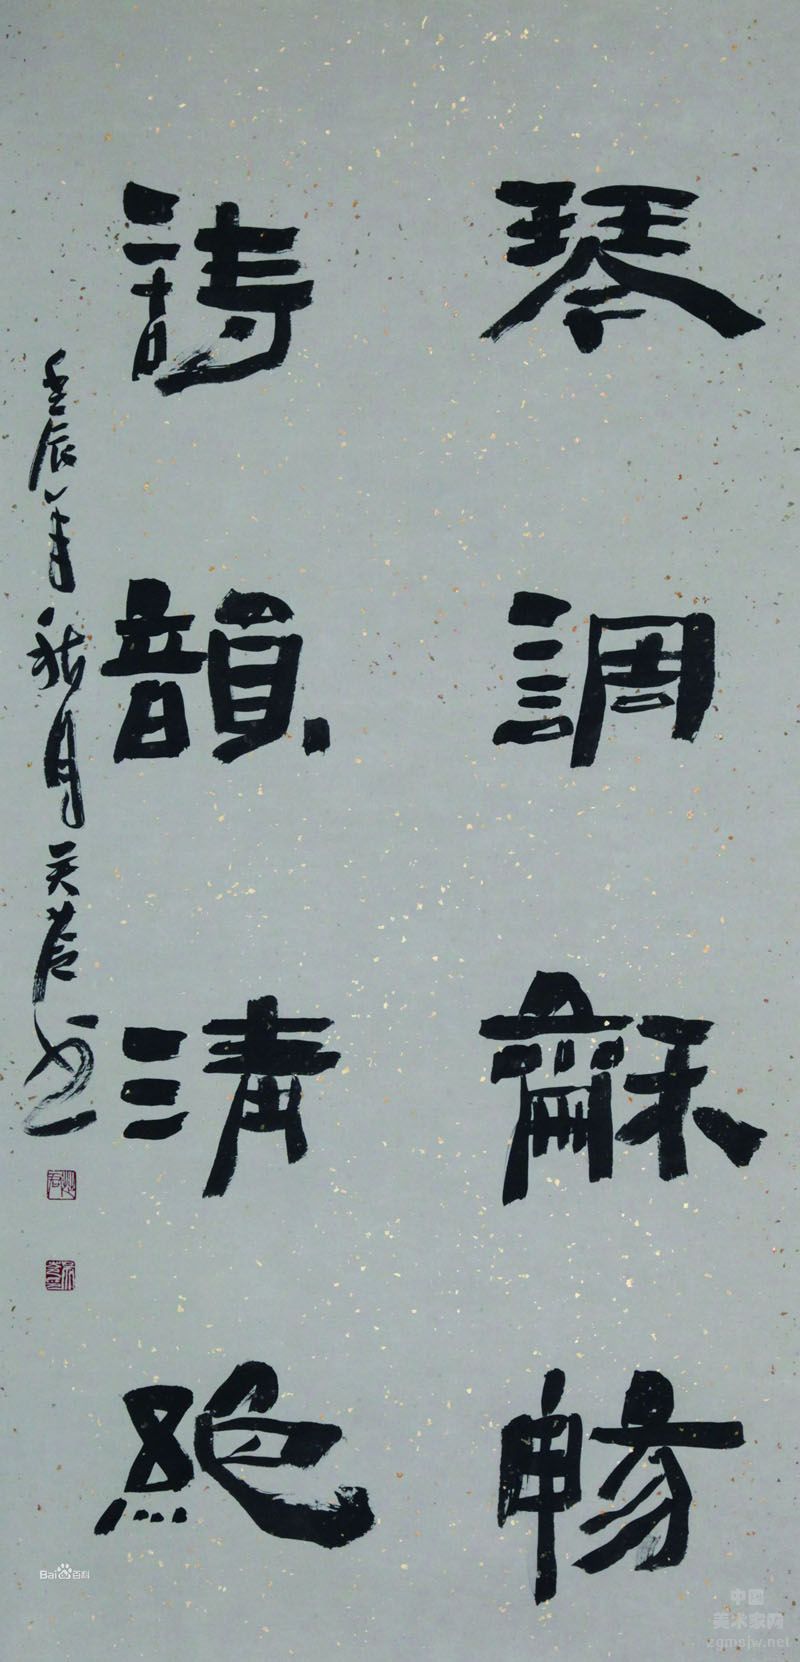 琴調龢暢
詩韻清絕
壬辰年秋月天答书
Bai百科
中国
美术家网
zgmsjw.net